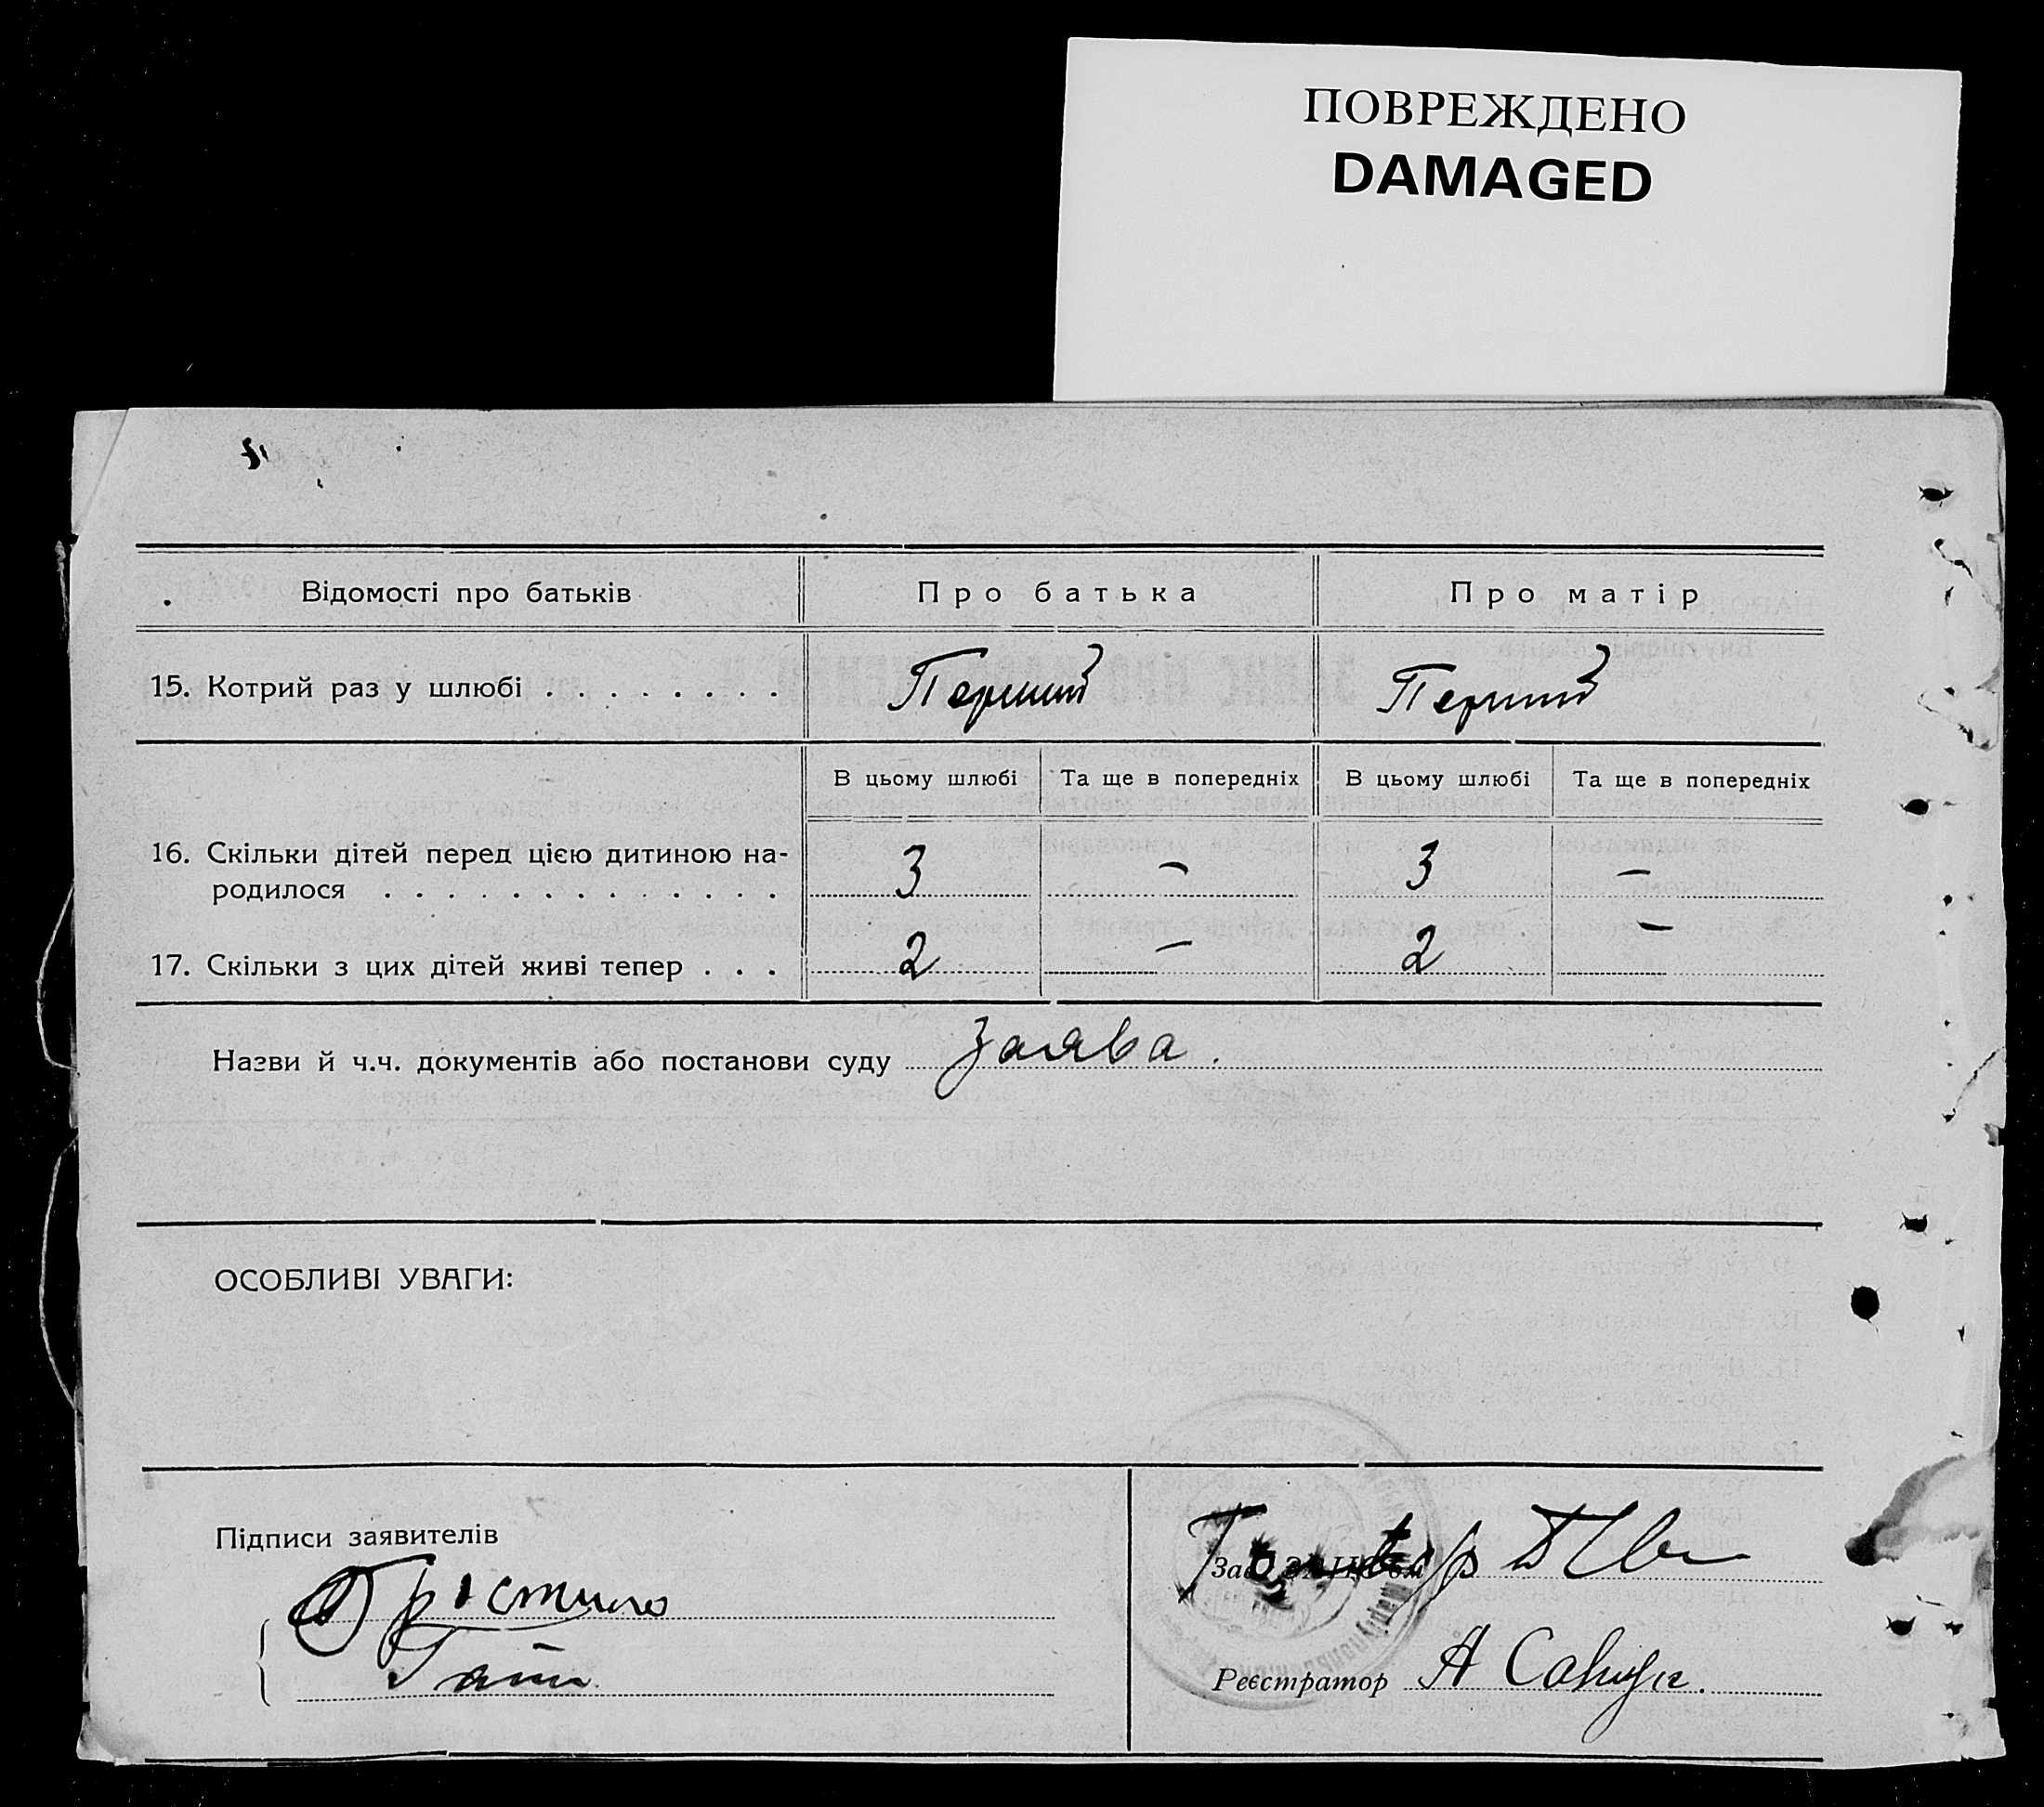 ПОВРЕЖДЕНО
DAMAGED
Відомості про батьків
Про батька
Про матір
15. Котрий раз у шлюбі . . . . . . . .
Перший
Перший
В цьому шлюбі
Та ще в попередніх
В цьому шлюбі
Та ще в попередніх
16. Скільки дітей перед цією дитиною на-
родилося . . . . . . . . . . . . .
3
–
3
–
17. Скільки з цих дітей живі тепер . . .
2
–
2
–
Назви й ч.ч. документів або постанови суду Заява.
ОСОБЛИВІ УВАГИ:
Підписи заявителів
Реєстратор А